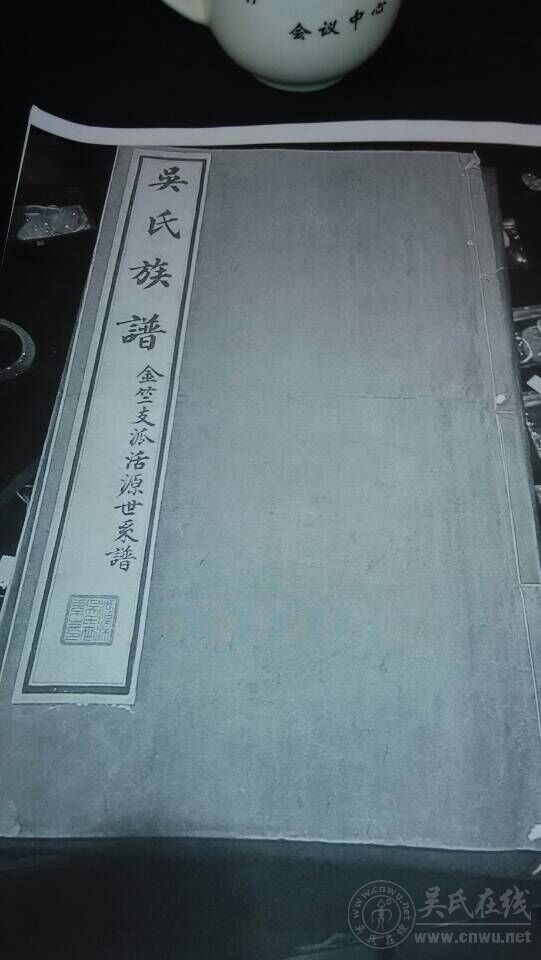 会议中心
吳氏族譜
金竺支派活源世系譜
吴氏在线
www.cnwu.net
www.cnwu.net
吴氏在线